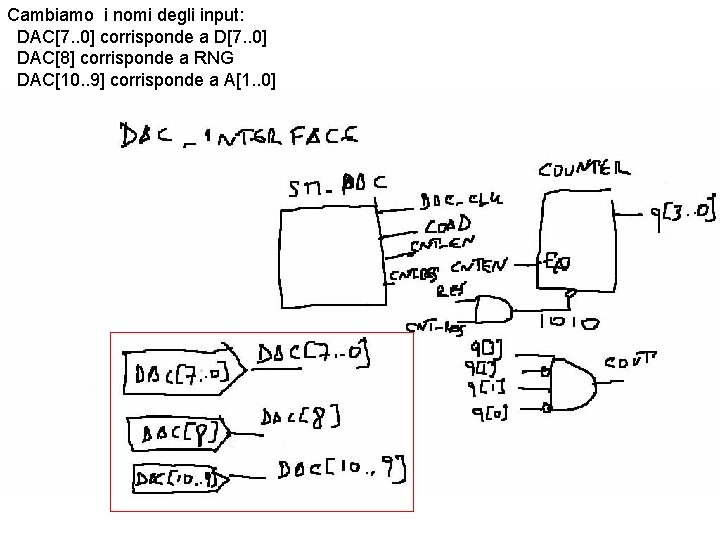 Cambiamo i nomi degli input:
DAC[7..0] corrisponde a D[7..0]
DAC[8] corrisponde a RNG
DAC[10..9] corrisponde a A[1..0]
DAC_INTERFACE
COUNTER
DAC_CLK
LOAD
q[3..0]
CNT_EN
CNTEN
RES
CNT_RES
1010
DAC[7..0]
DAC[7..0]
q[3]
q[1]
q[0]
COUT
DAC[8]
DAC[8]
DAC[10..9]
DAC[10..9]